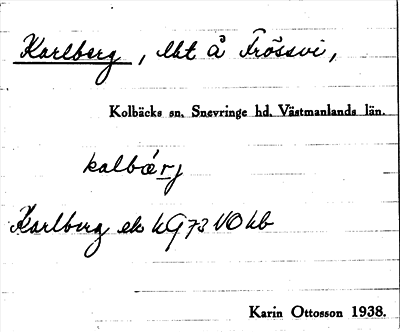 Karlberg, lht å Frössvi,
Kolbäcks sn. Snevringe hd. Västmanlands län.
kalbærj
Karlberg ek hG73 VO hb
Karin Ottosson 1938.